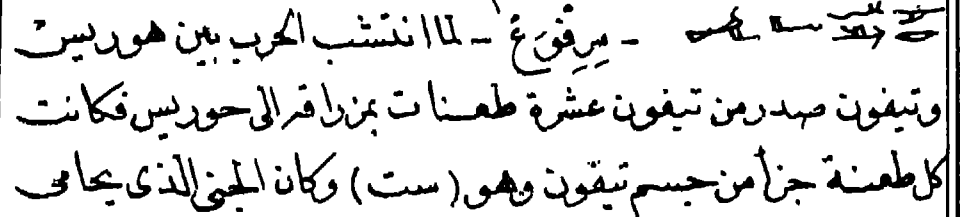 - مِرِقْوَعْ - لما انتشب الحرب بين هوريس
وتيفون صدر من تيفون عشرة طعنات بمزراقه الى حوريس فكانت
كل طعنة جزأ من جسم تيفون وهو (ست) وكان الجنى الذى يحامى